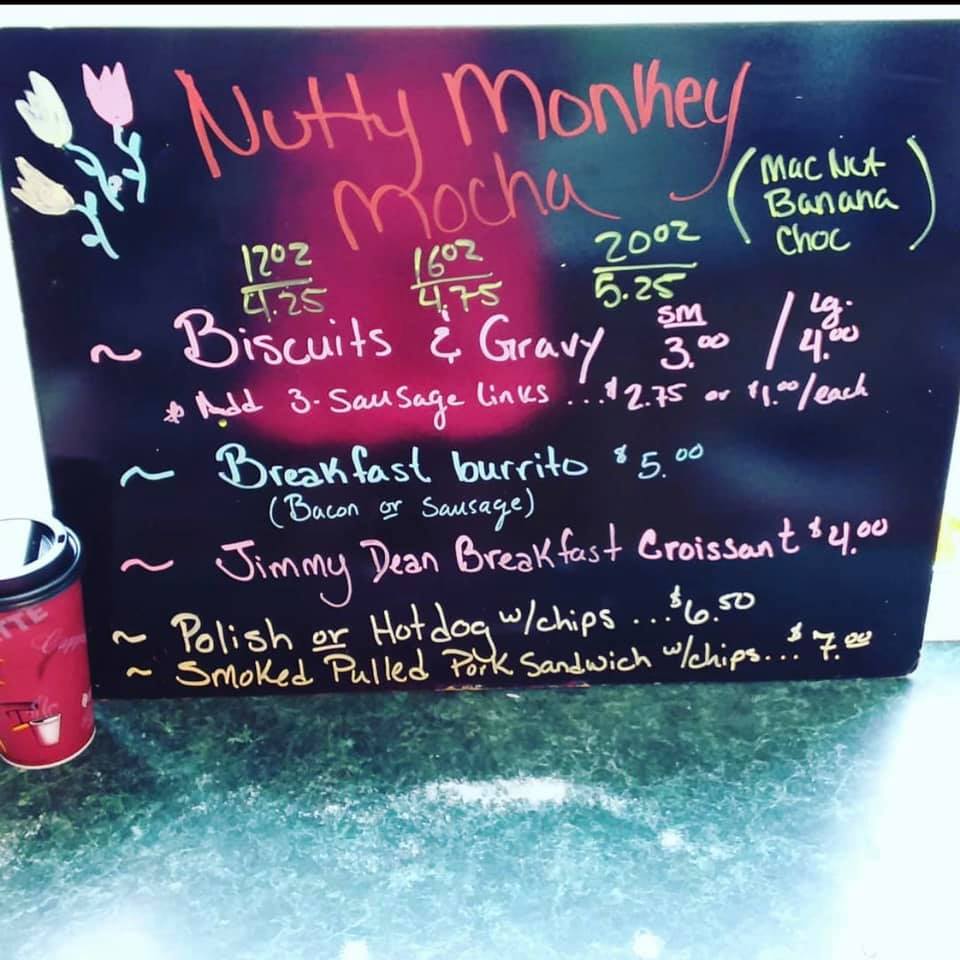 Nutty Monkey
Mocha
(Mac Nut
Banana
Choc)
12oz 16oz 20oz
4.25 4.75 5.25
~ Biscuits & Gravy SM 3.00 / lg. 4.00
* Add 3-Sausage links ...$2.75 or $1.00/each
~ Breakfast burrito $5.00
(Bacon or Sausage)
~ Jimmy Dean Breakfast Croissant $4.00
~ Polish or Hotdog w/chips ...$6.50
~ Smoked Pulled Pork Sandwich w/chips...$7.00